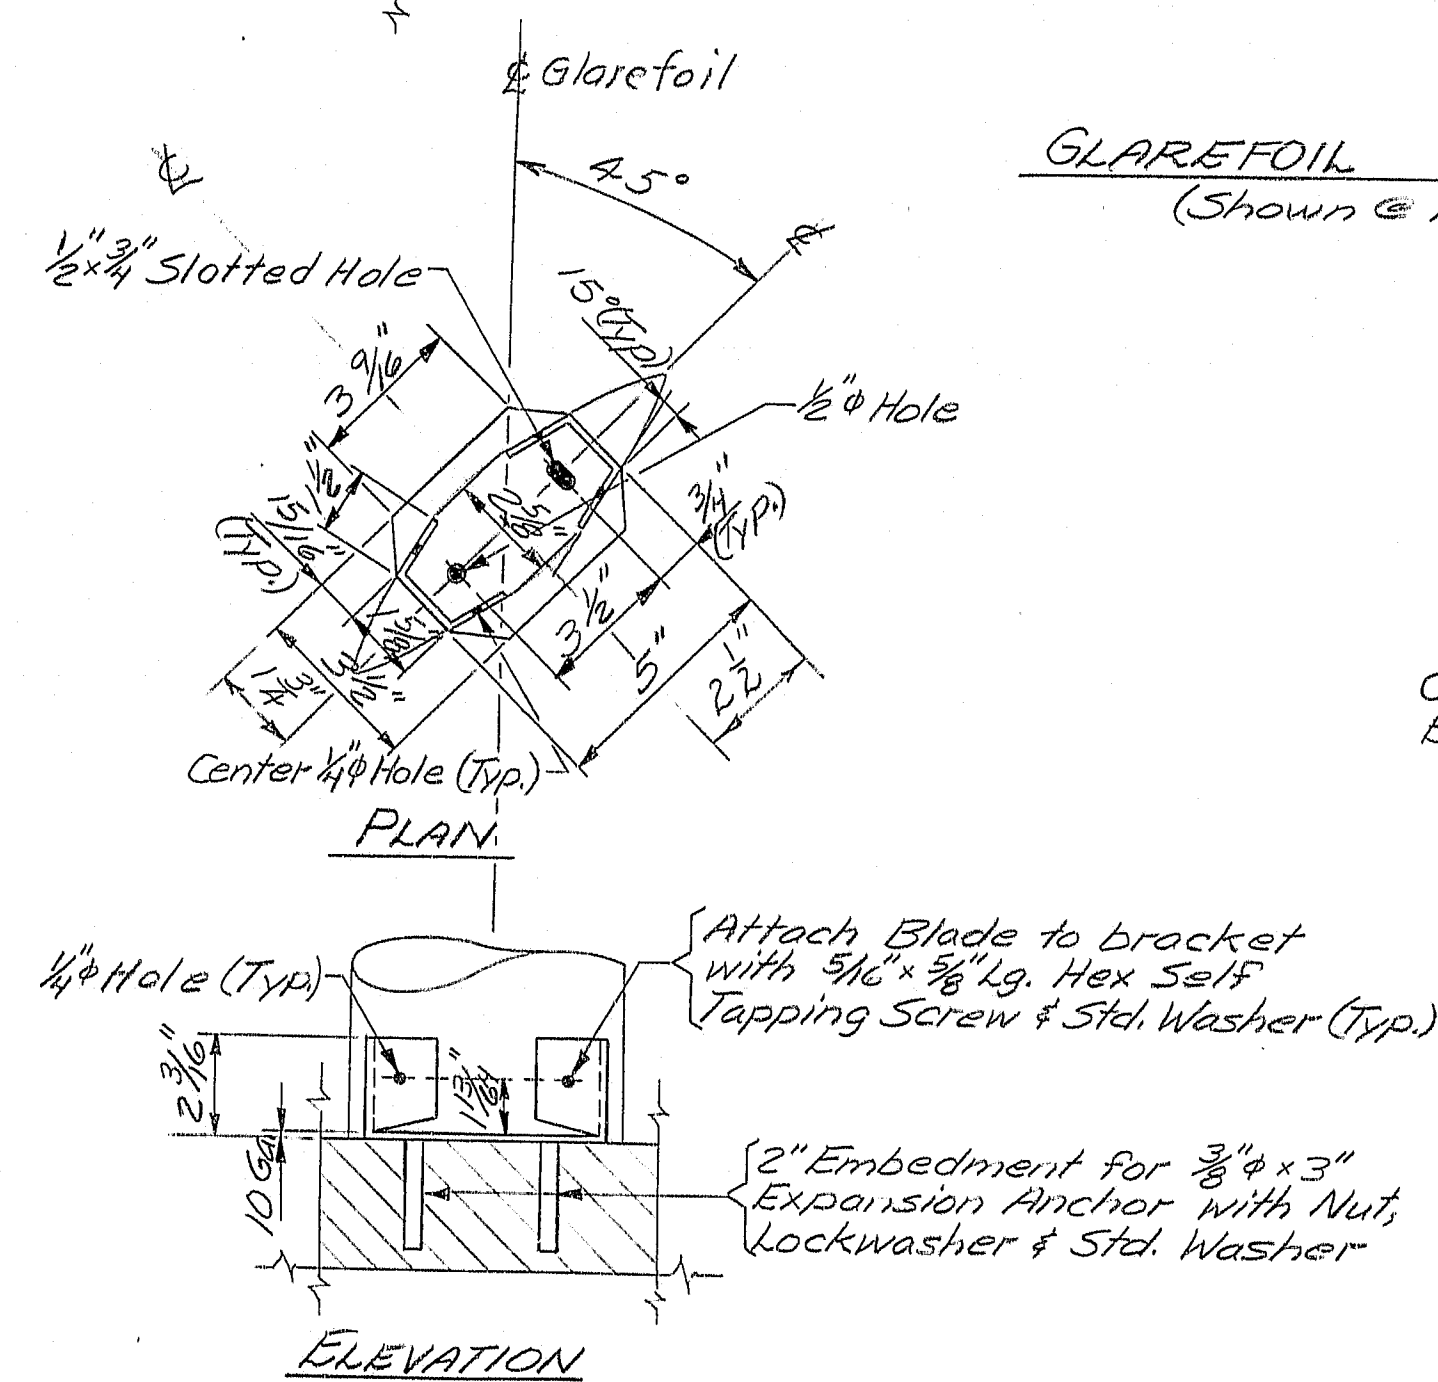 ℄ Glarefoil
GLAREFOIL
(Shown @
℄
45°
℄
1/2" x 3/4" Slotted Hole
15° (Typ.)
3 9/16"
1/2" φ Hole
1/2"
15/16"
(Typ.)
2 5/8"
3/4"
(Typ.)
1 5/8"
3 1/2"
3 1/2"
5"
2 1/2"
1 3/4"
Center 1/4" φ Hole (Typ.)
PLAN
1/4" φ Hole (Typ.)
Attach Blade to bracket
with 5/16" x 5/8" Lg. Hex Self
Tapping Screw & Std. Washer (Typ.)
2 3/16"
1 13/64"
10 Ga.
2" Embedment for 3/8" φ x 3"
Expansion Anchor with Nut,
Lockwasher & Std. Washer
ELEVATION